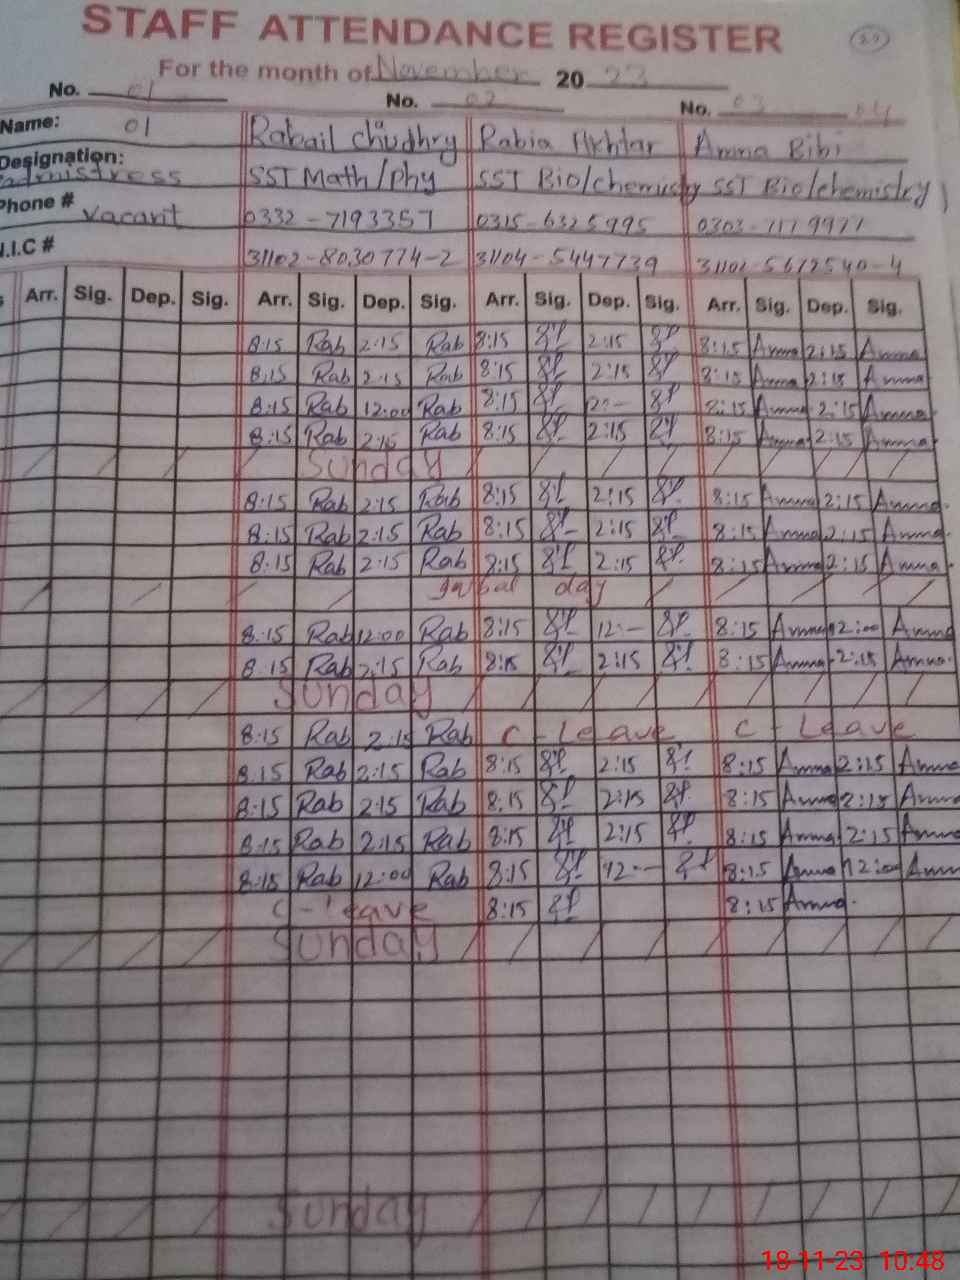 STAFF ATTENDANCE REGISTER
For the month of November 2023
No. 01 No. 02 No. 03 04
Name: 01 Rabail Chudhry Rabia Akhtar Amna Bibi
Designation: SST Math/Phy SST Bio/chemistry SST Bio/chemistry
admistress
Phone # Vacant 0332-7193357 0315-6325995 0303-7179971
.I.C # 31102-8030774-2 31104-5447739 31101-5612540-4
Arr. Sig. Dep. Sig. Arr. Sig. Dep. Sig. Arr. Sig. Dep. Sig. Arr. Sig. Dep. Sig.
8:15 Rab 2:15 Rab 8:15 2:15 8:15 Amna 2:15 Amna
8:15 Rab 2:15 Rab 8:15 2:15 8:15 Amna 2:15 Amna
8:15 Rab 12:00 Rab 8:15 8:15 Amna 2:15 Amna
8:15 Rab 2:15 Rab 8:15 2:15 8:15 Amna 2:15 Amna
Sunday
8:15 Rab 2:15 Rab 8:15 2:15 8:15 Amna 2:15 Amna
8:15 Rab 2:15 Rab 8:15 2:15 8:15 Amna 2:15 Amna
8:15 Rab 2:15 Rab 8:15 2:15 8:15 Amna 2:15 Amna
iqbal day
8:15 Rab 12:00 Rab 8:15 12:- 8:15 Amna 12:00 Amna
8:15 Rab 2:15 Rab 8:15 2:15 8:15 Amna 2:15 Amna
Sunday
8:15 Rab 2:15 Rab C-Leave C-Leave
8:15 Rab 2:15 Rab 8:15 2:15 8:15 Amna 2:15 Amna
8:15 Rab 2:15 Rab 8:15 2:15 8:15 Amna 2:15 Amna
8:15 Rab 2:15 Rab 8:15 2:15 8:15 Amna 2:15 Amna
8:15 Rab 12:00 Rab 8:15 12-- 8:15 Amna 12:00 Amn
C-leave 8:15 8:15 Amna
Sunday
Sunday
18-11-23 10:48